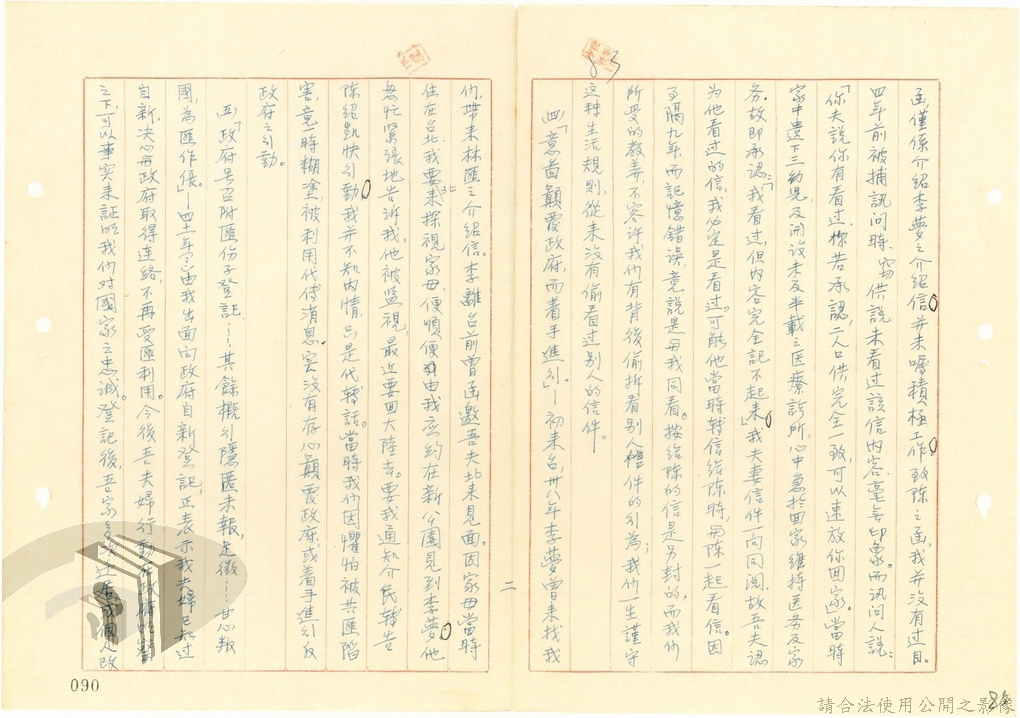 函，僅係介紹李夢之介紹信，並未囑積極工作，致陈之函，我并沒有过目。
四年前被捕訊問時，當供說未看过該信内容，毫無印象。而訊问人說：
「你夫說你有看过，你若承認，二人口供完全一致，可以速放你回家」。當時
家中遺下三幼児，及開設未及半載之医療診所，心中急於回家維持医务及家
务，故即承認：「我看过，但内容完全記不起来」。我夫妻信件一向同閲，故吾夫認
为他看过的信，我必定是看过。可能他當時轉信給陈時，與陈一起看信。因
事隔九年而記憶錯誤，竟說是與我同看。按給陈的信是另封的，而我们
所受的教養，不容許我们有背後偷拆看别人信件的行為；我们一生謹守
这种生活規則，從未沒有偷看过别人的信件。
四「意啚顛覆政府，而着手進行」。—初来台，卅八年李夢曾来找我
们，带来林匯之介紹信。李離台前曾函邀吾夫北来見面。因家母當時
住在台北，我要来北探視家母，便順便由我应約在新公園見到李夢。他
怱忙紧張地告訴我，他被监視，最近要回大陸去。要我通知介民轉告
陈紹凱快行動。我并不知内情，只是代轉話。當時我们因懼怕被共匪陷
害，竟一時糊塗，被利用代傳消息。实沒有存心顛覆政府或着手進行反
政府之行動。
五「政府号召附匪份子登記……其餘概行隱匿未報，足徵……甘心叛
國，為匪作倀。」—四十年，由我出面向政府自新登記，正表示我夫婦已知过
自新，决心與政府取得連絡，不再受匪利用。今後吾夫婦行動在政府监察
之下，可以事实来証明我们对國家之忠誠。登記後，吾家
二
090
請合法使用公開之影像